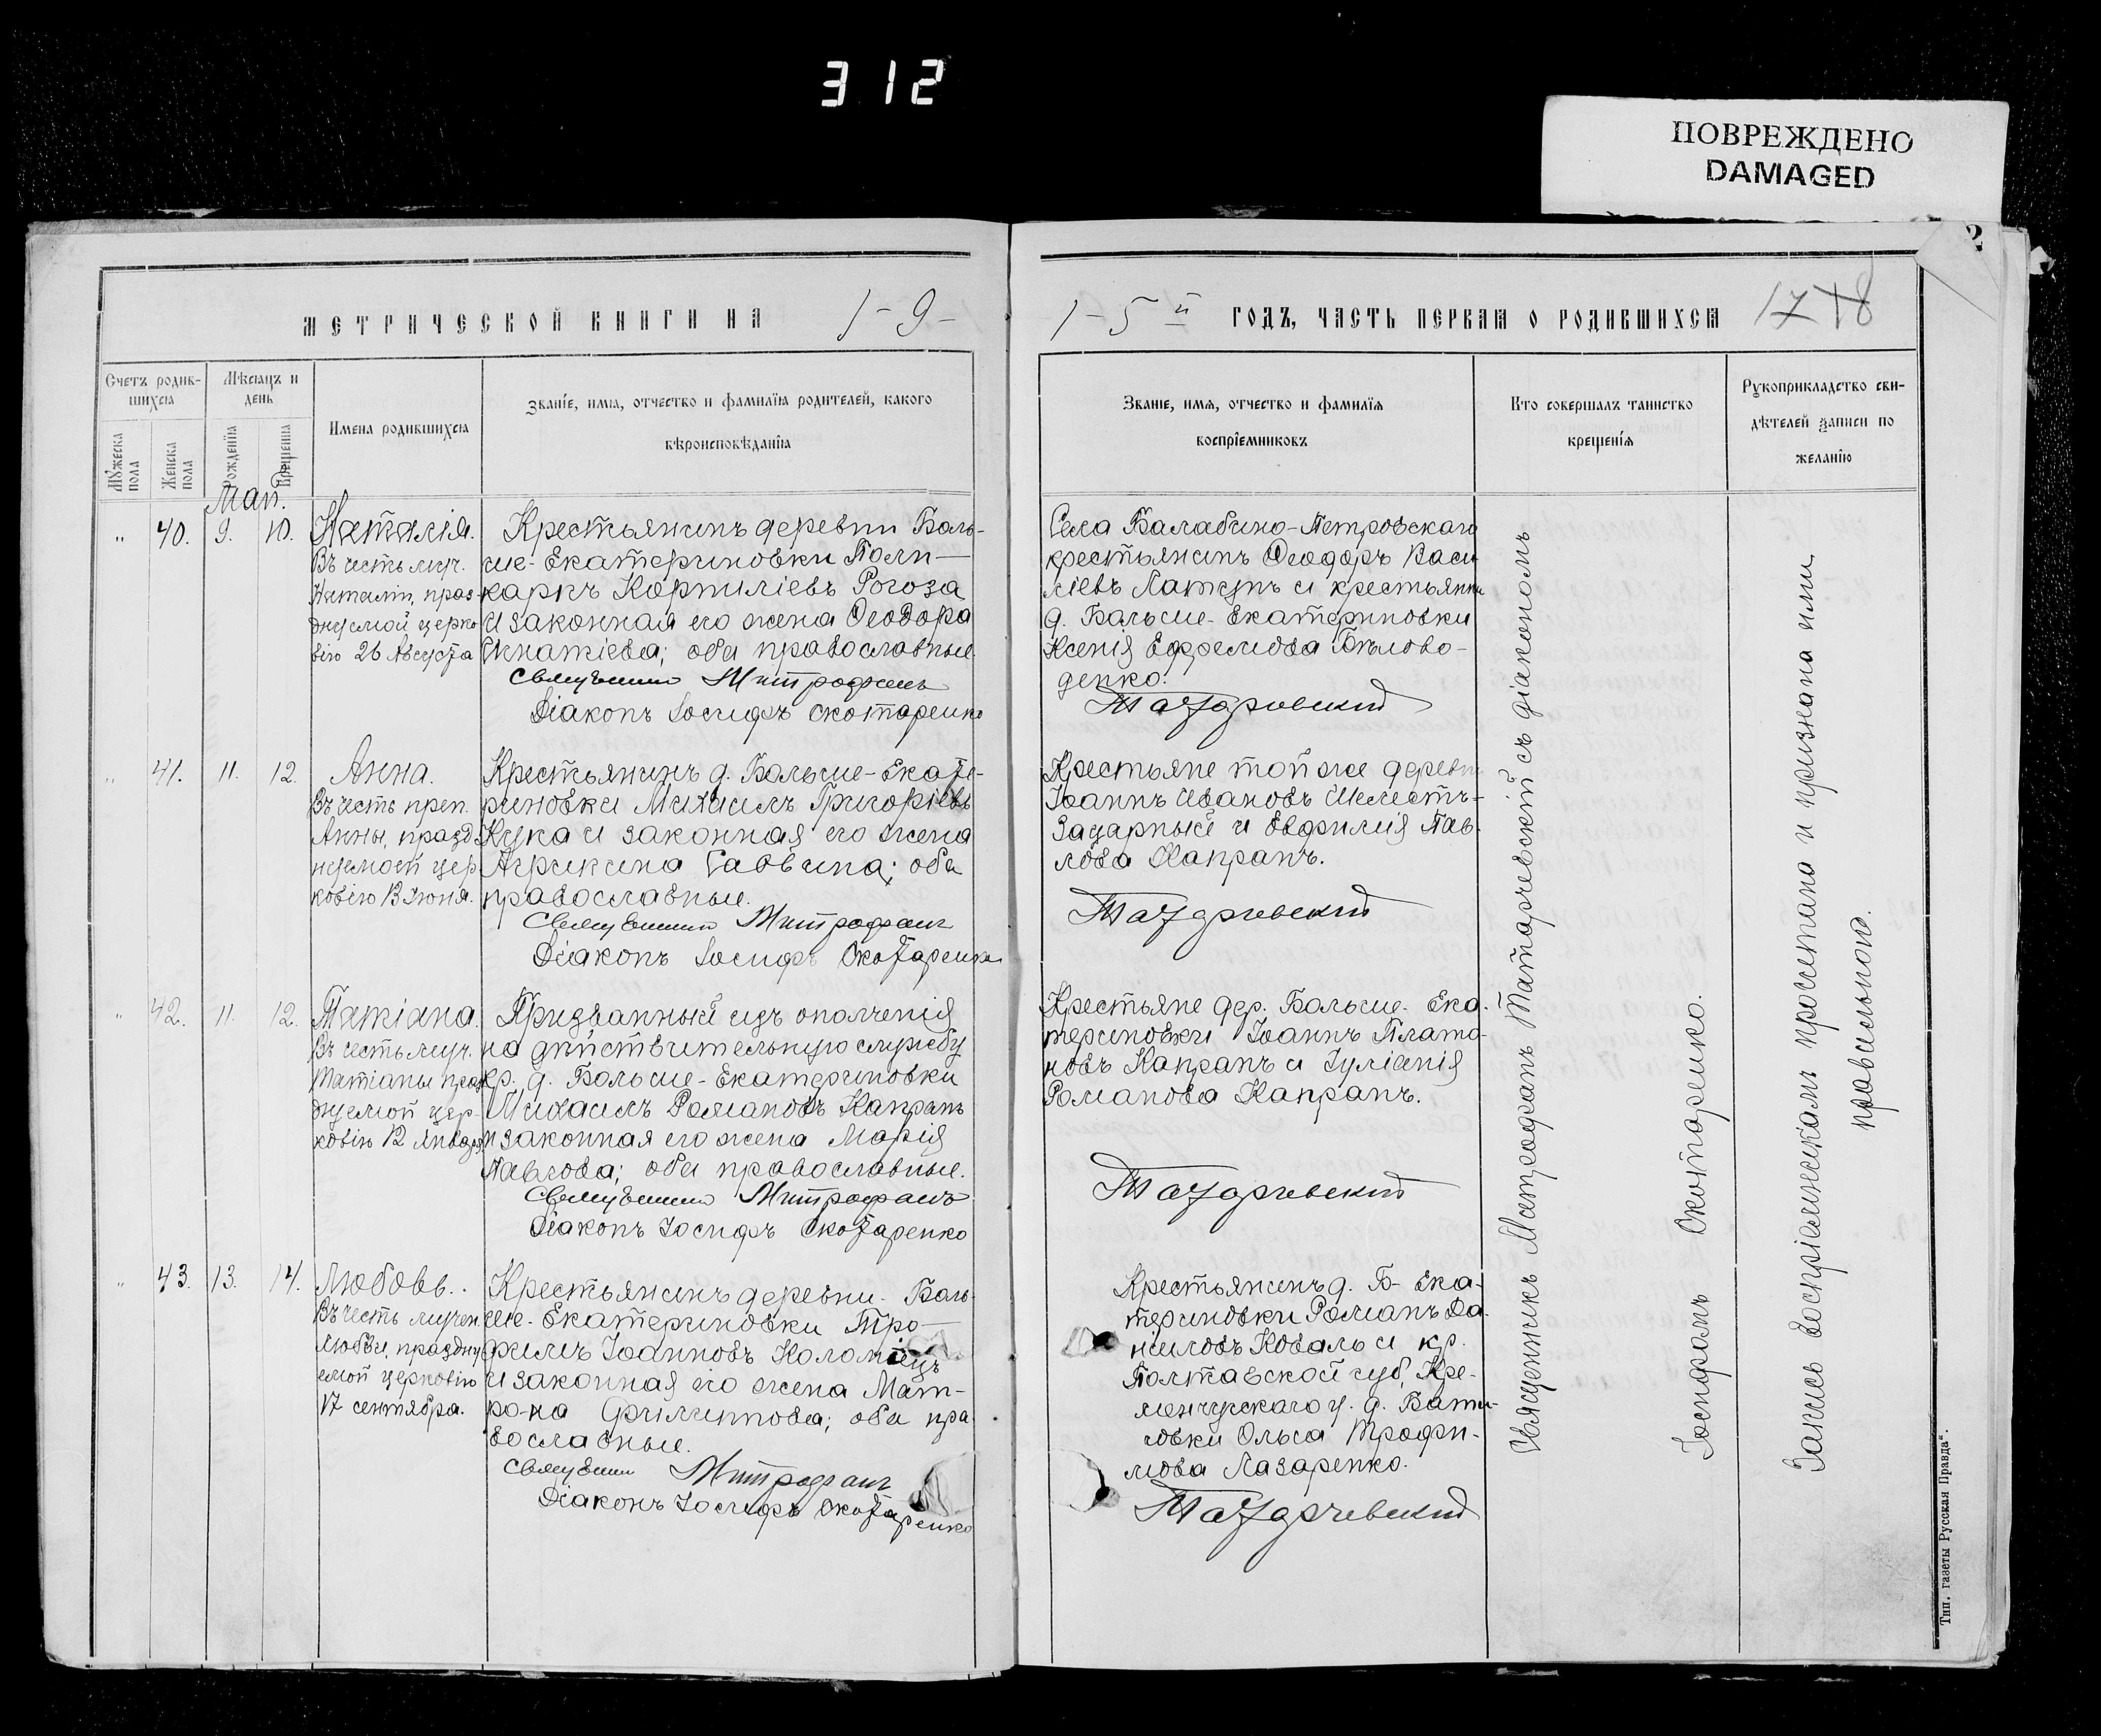 312
ПОВРЕЖДЕНО
DAMAGED
2
МЕТРИЧЕСКОЙ КНИГИ НА 1-9-
1-5й ГОДЪ, ЧАСТЬ ПЕРВАЯ О РОДИВШИХСЯ
Счетъ родив-
шихся
Мѣсяцъ и
день
Мужеска
пола
Женска
пола
Рожденія
Крещенія
Имена родившихся
Званіе, имя, отчество и фамилія родителей, какого
вѣроисповѣданія
Званіе, имя, отчество и фамилія
воспріемниковъ
Кто совершалъ таинство
крещенія
Рукоприкладство сви-
дѣтелей записи по
желанію
Май.
" 40. 9. 10.
Наталія.
Въ честь муч.
Наталіи, праз-
днуемой церко-
вію 26 Августа
Крестьянинъ деревни Боль-
ше-Екатериновки Поли-
карпъ Корниліевъ Рогоза
и законная его жена Ѳеодора
Игнатіева; оба православные.
Священникъ Митрофанъ
Діаконъ Іосифъ Скотаренко
Села Балабино-Петровскаго
крестьянинъ Ѳеодоръ Васи
ліевъ Латунъ и крестьянка
д. Больше-Екатериновки
Ксенія Ефремова Бѣлово-
денко.
Татарчевскій
" 41. 11. 12.
Анна.
Въ честь преп.
Анны, празд-
нуемой цер-
ковію 13 Іюня.
Крестьянинъ д. Больше-Екате-
риновки Михаилъ Григоріевъ
Кука и законная его жена
Агрипина Саввина; оба
православные.
Священникъ Митрофанъ
Діаконъ Іосифъ Скотаренко
Крестьяне той же деревни
Іоаннъ Ивановъ Шелестъ-
Зацарный и Евфимія Пав-
лова Капранъ.
Татарчевскій
" 42. 11. 12.
Татіана.
Въ честь муч.
Татіаны праз-
днуемой цер-
ковію 12 Января
Призванный изъ ополченія
на дѣйствительную службу
кр. д. Больше-Екатериновки
Михаилъ Романовъ Капранъ
и законная его жена Марія
Павлова; оба православные.
Священникъ Митрофанъ
Діаконъ Іосифъ Скотаренко
Крестьяне дер. Больше-Ека-
териновки Іоаннъ Плато-
новъ Капранъ и Іуліанія
Романова Капранъ.
Татарчевскій
" 43. 13. 14.
Любовь.
Въ честь мучен
Любви, праздну
емой церковію
17 сентября.
Крестьянинъ деревни Боль-
ше-Екатериновки Тро-
фимъ Іоанновъ Коломіецъ
и законная его жена Мат-
рона Филиппова; оба пра-
вославные.
Священникъ Митрофанъ
Діаконъ Іосифъ Скотаренко
Крестьянинъ д. Б-Ека-
териновки Романъ Да-
ніиловъ Коваль и кр.
Полтавской губ, Кре-
менчугскаго у. д.
Ольга Трофи-
мова Лазаренко.
Татарчевскій
Священникъ Митрофанъ Татарчевскій съ діакономъ
Іосифомъ Скотаренко.
Запись воспріемникамъ прочитана и признана ими
правильною.
Тип. газеты Русская Правда".